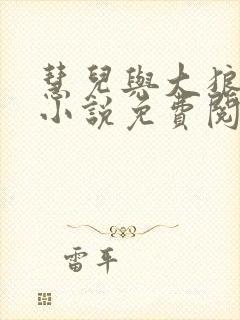 慧兒與大狼
小說免費閱
雷平